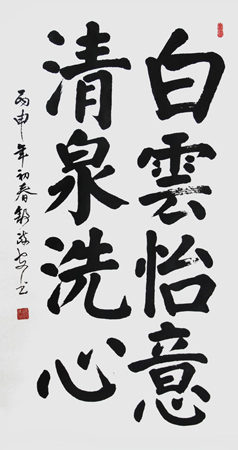 白雲怡意
清泉洗心
丙申年初春